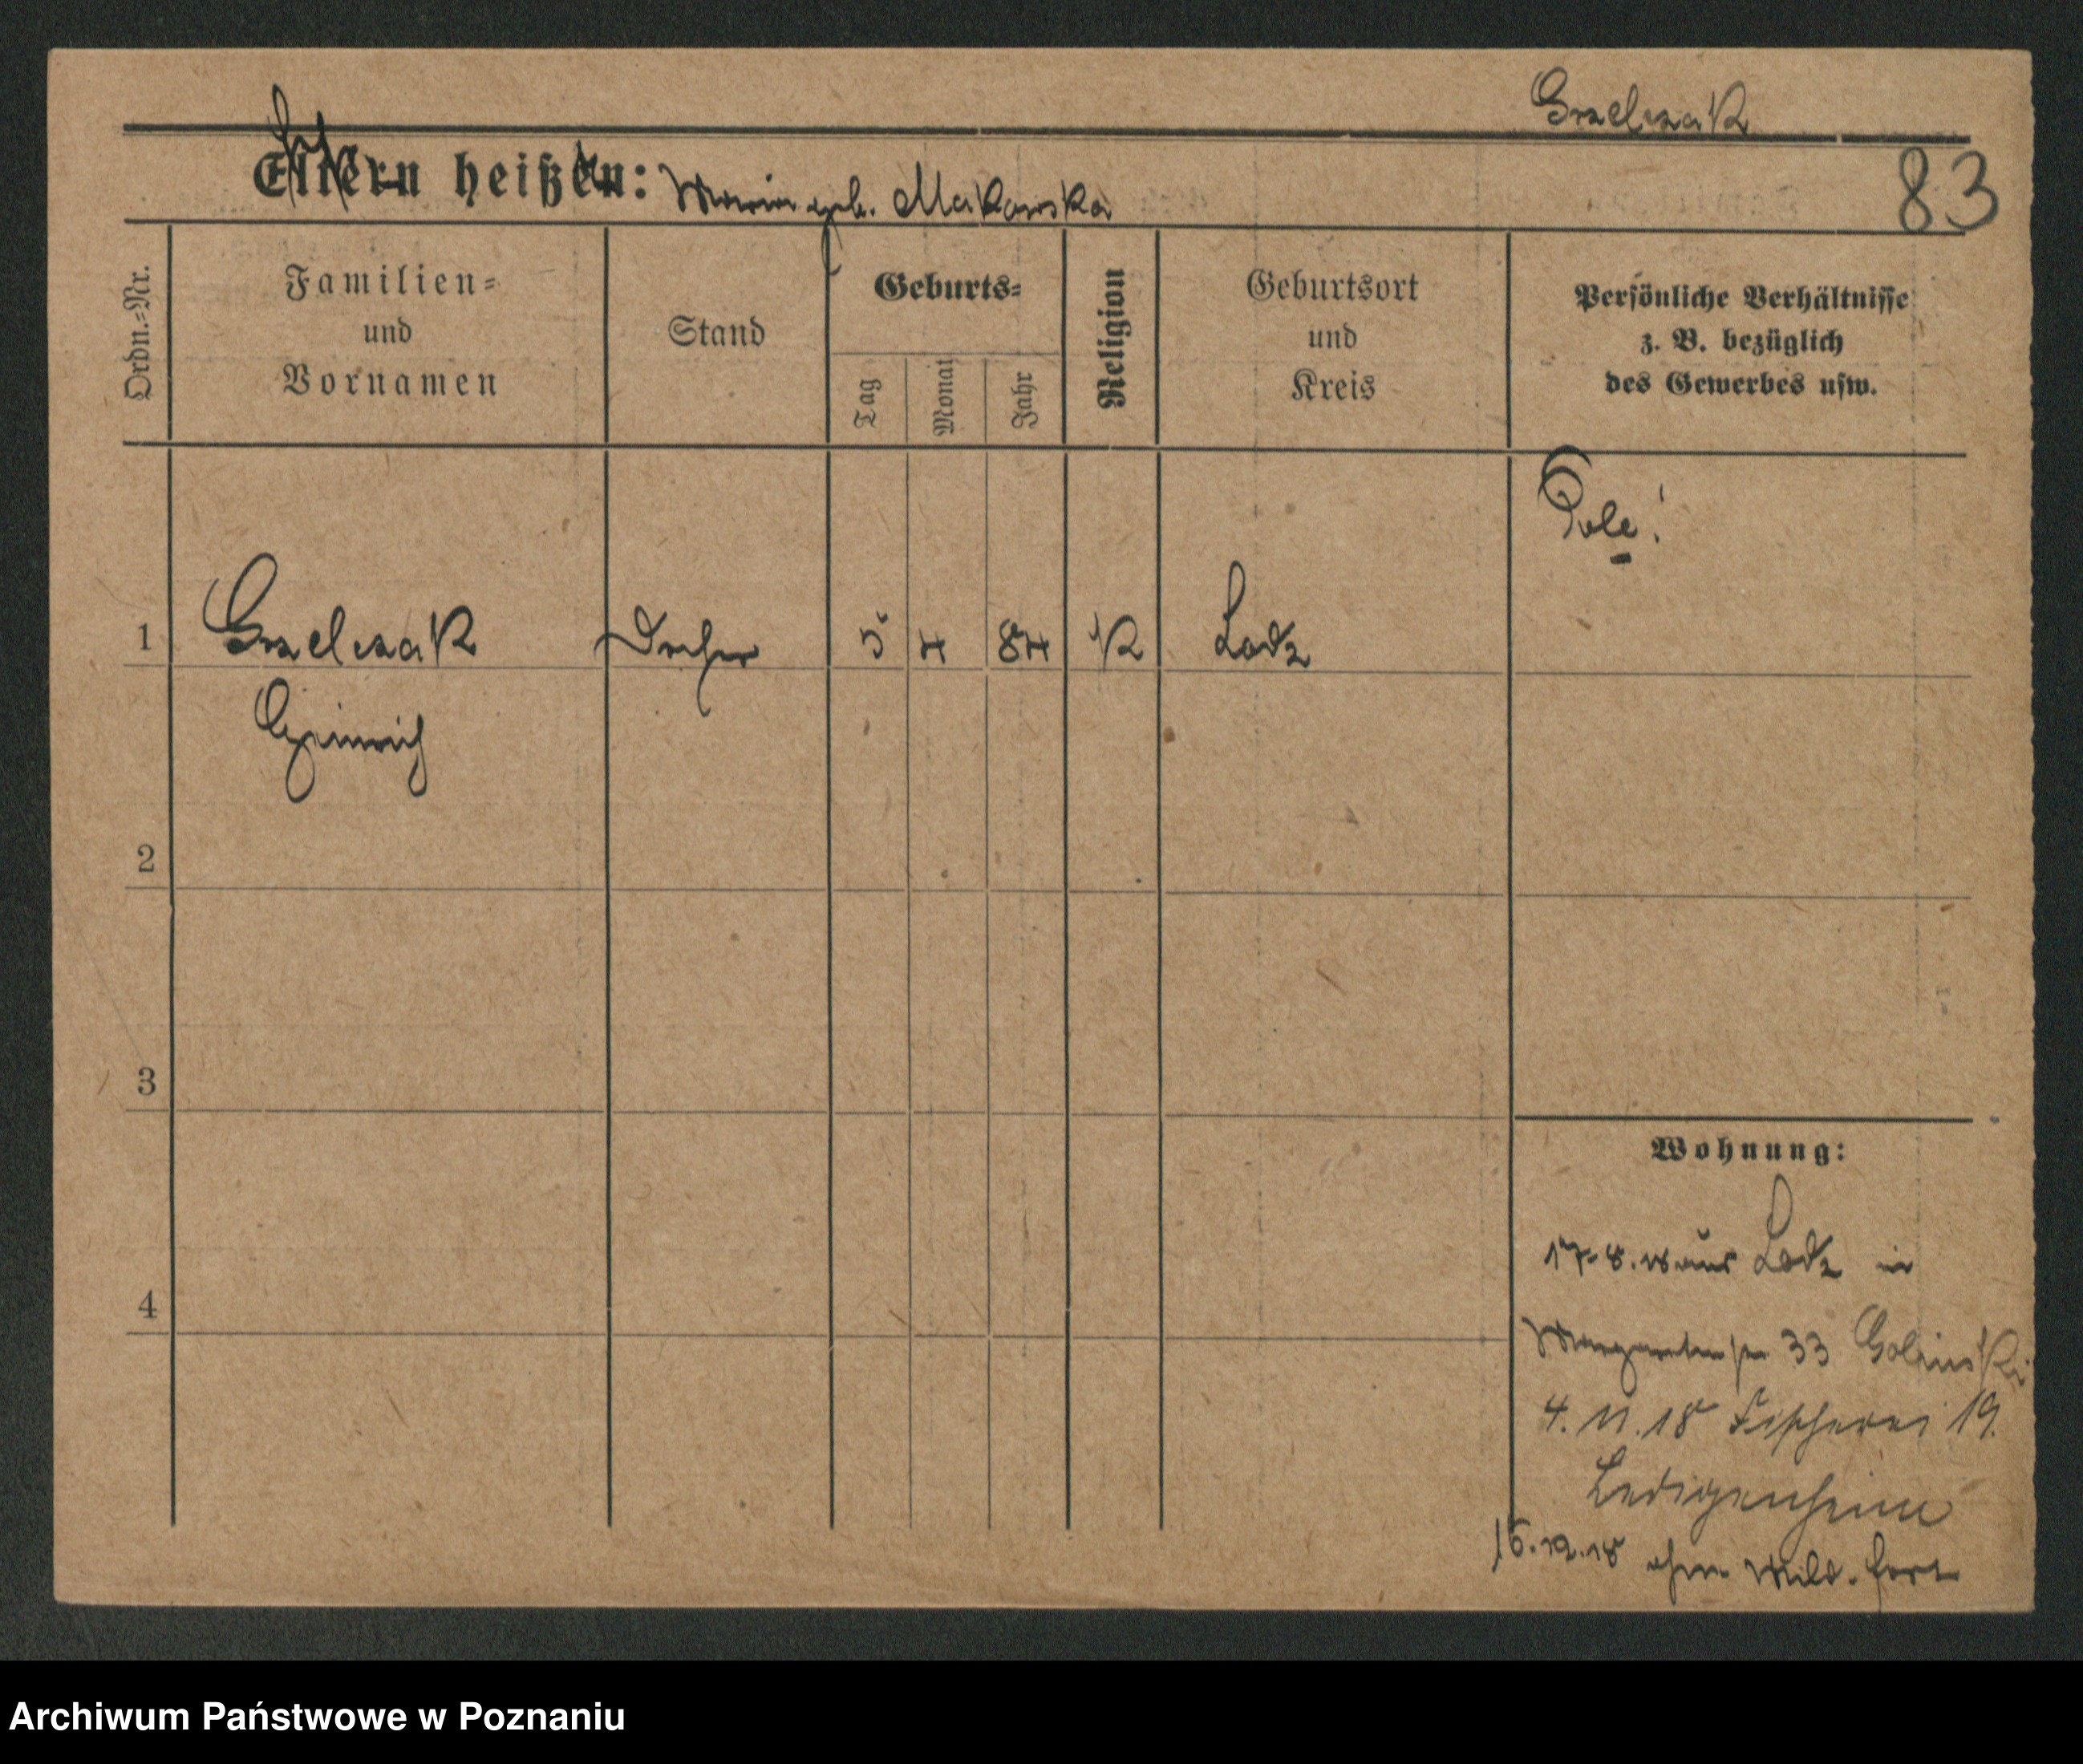 Grzelczak
83
Eltern heißen: Maria geb. Makowska
Ordn.-Nr.
Familien-
und
Vornamen
Stand
Geburts-
Tag
Monat
Jahr
Religion
Geburtsort
und
Kreis
Persönliche Verhältnisse
z. B. bezüglich
des Gewerbes usw.
Pole!
1 Grzelczak Dreher 5 4 84 K Lodz
Heinrich
2
3
4
Wohnung:
17.8.18 aus Lodz in
Margarethenstr 33 Golinski
4.11.18 Fischerei 19.
Ledigenheim
16.12.18 ohne Meld. fort
Archiwum Państwowe w Poznaniu